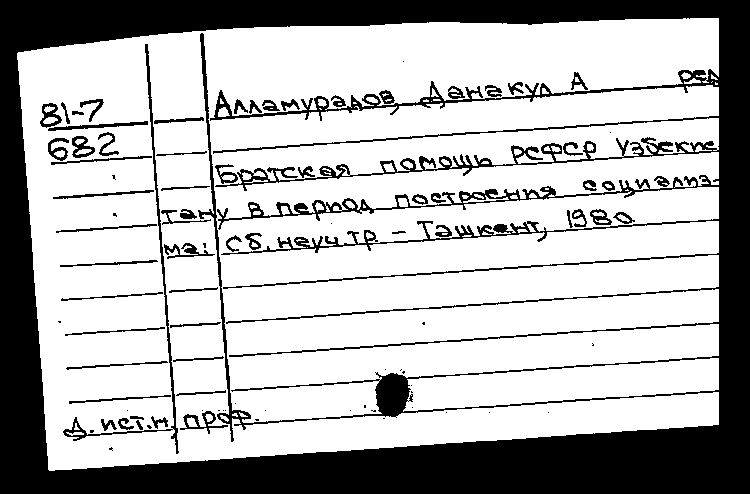 81-7 Алламурадов, Данакул А ред
682
Братская помощь РСФСР Узбекис
тану в период построения социализ-
ма: Сб. науч. тр – Ташкент, 1980
Д. ист. н, проф.